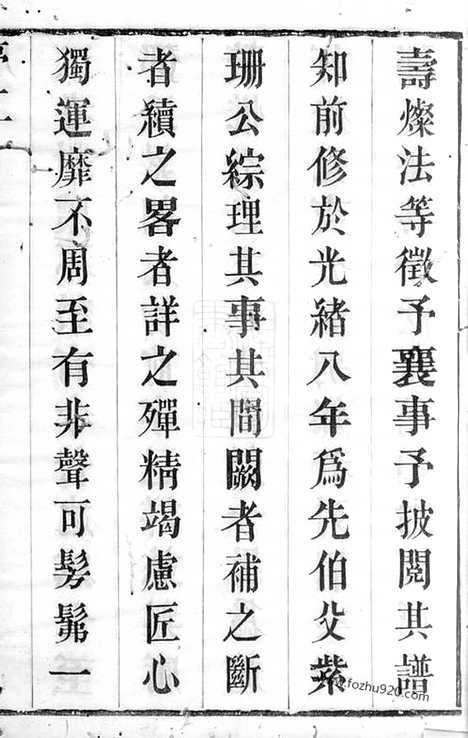 壽燦法等徵予襄事予披閱其譜
知前修於光緒八年爲先伯父紫
珊公綜理其事其間闕者補之斷
者續之畧者詳之殫精竭慮匠心
獨運靡不周至有非聲可髣髴一
www.fozhu920.com